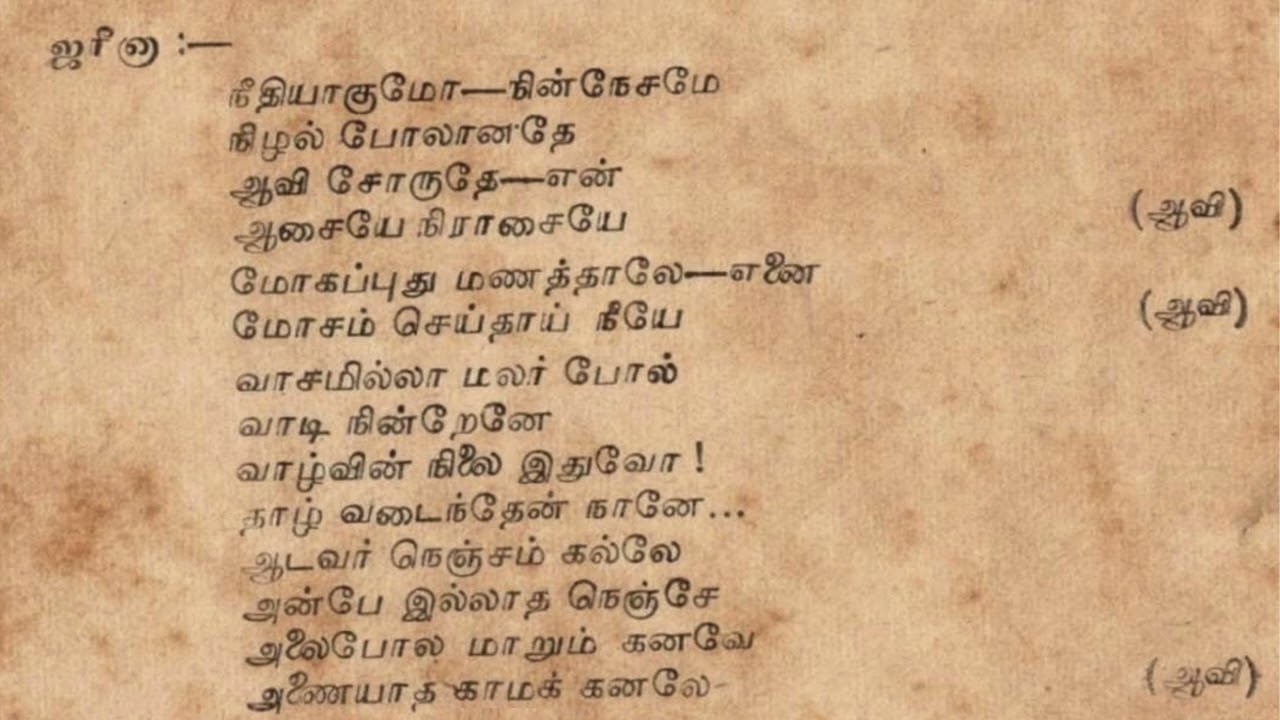 ஜரீனா :—
நீதியாகுமோ—நின்நேசமே
நிழல் போலானதே
ஆவி சோருதே—என்
ஆசையே நிராசையே (ஆவி)
மோகப்புது மணத்தாலே—எனை
மோசம் செய்தாய் நீயே (ஆவி)
வாசமில்லா மலர் போல்
வாடி நின்றேனே
வாழ்வின் நிலை இதுவோ !
தாழ் வடைந்தேன் நானே...
ஆடவர் நெஞ்சம் கல்லே
அன்பே இல்லாத நெஞ்சே
அலைபோல மாறும் கனவே
அணையாத காமக் கனலே (ஆவி)